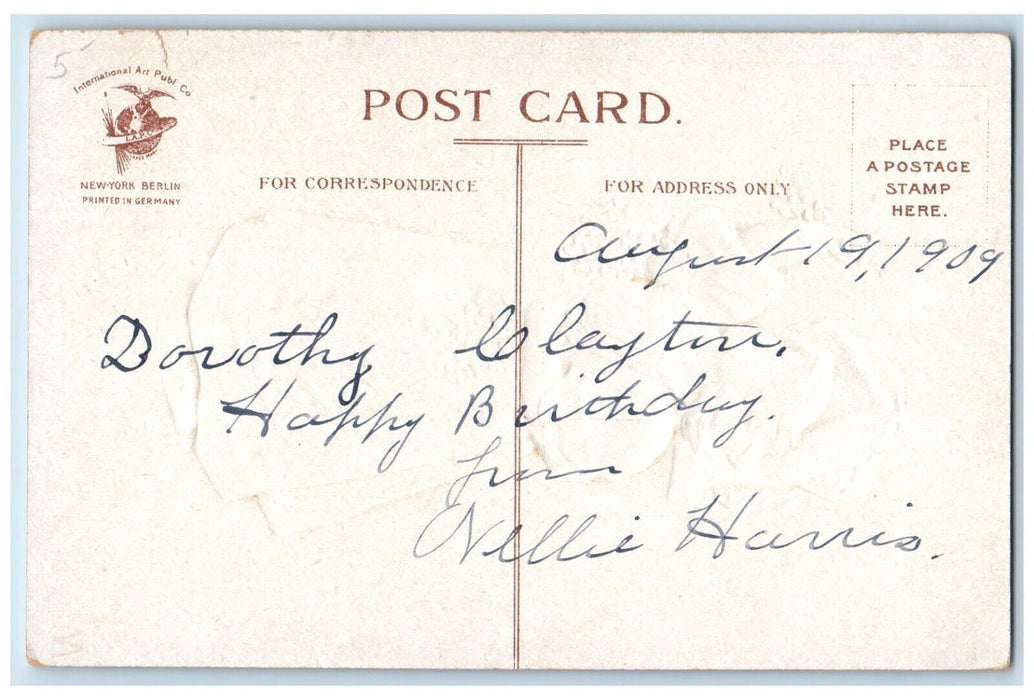 5
International Art Publ Co
NEW-YORK BERLIN
PRINTED IN GERMANY
POST CARD.
FOR CORRESPONDENCE
FOR ADDRESS ONLY
PLACE
A POSTAGE
STAMP
HERE.
August 19, 1909
Dorothy Clayton.
Happy Birthday.
from
Nellie Harris.